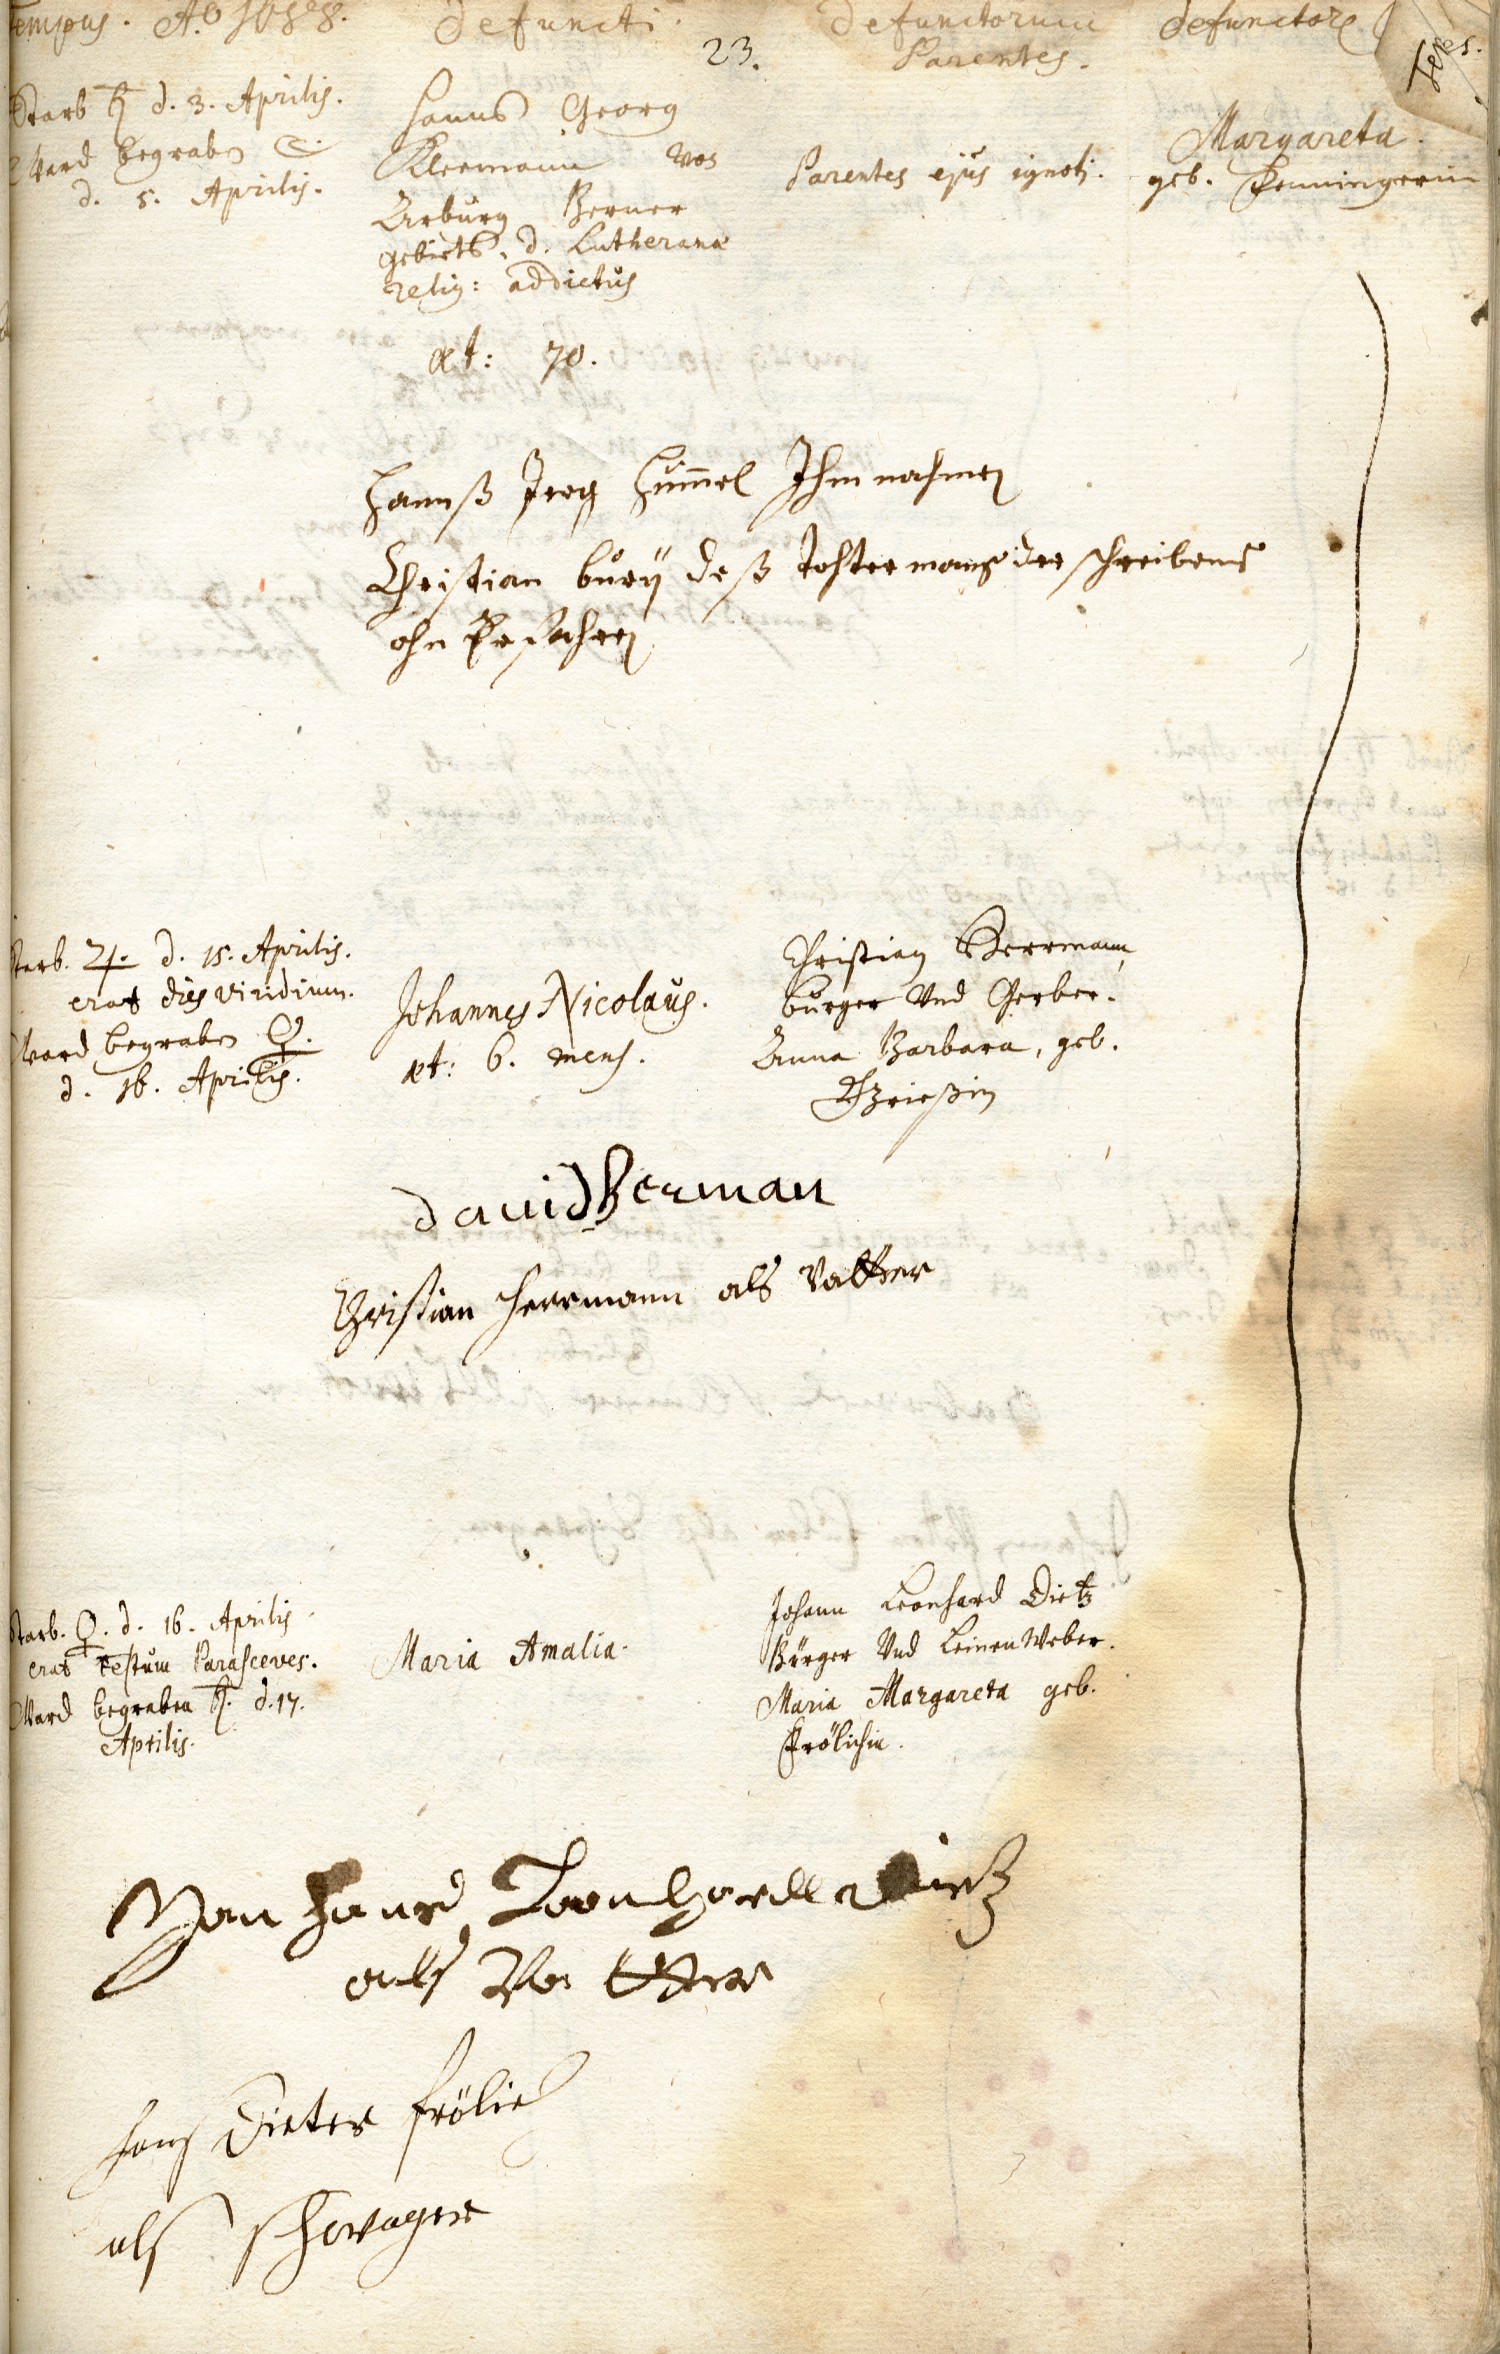 Tempus. Ao 1688. Defuncti. Defunctorum Defunctorū
23. Parentes.
Starb ♄ d. 3. Aprilis.
Ward begrabē ☾.
d. 5. Aprilis.
Hanns Georg
Kleemann von
Arburg Berner
gebiets, d. Lutheranæ
relig: addictus
æt: 70.
Parentes ejus ignoti.
Margareta.
geb.
Hannß Jerg Him̄el Ihm nahmen
Christian bury deß Tohtermans der schreibens
ohn Erfahren
Starb. ♃. d. 15. Aprilis.
erat dies viridium.
Ward begrabē ♀.
d. 16. Aprilis.
Johannes Nicolaus.
æt: 6. mens.
Christian Herrmann,
burger Und Gerber.
Anna Barbara, geb.
david Herman
Christian Herrmann als Vatter
Starb. ♀. d. 16. Aprilis
erat Festum Parasceves.
Ward begraben ♄. d. 17.
Aprilis.
Maria Amalia.
Johann Leonhard Dietz
Bürger Und Leinen Weber.
Maria Margareta geb.
Frölichin.
Hans Leonhardt Dietz
als Vatter
Hans Dieter frölich
als schwager